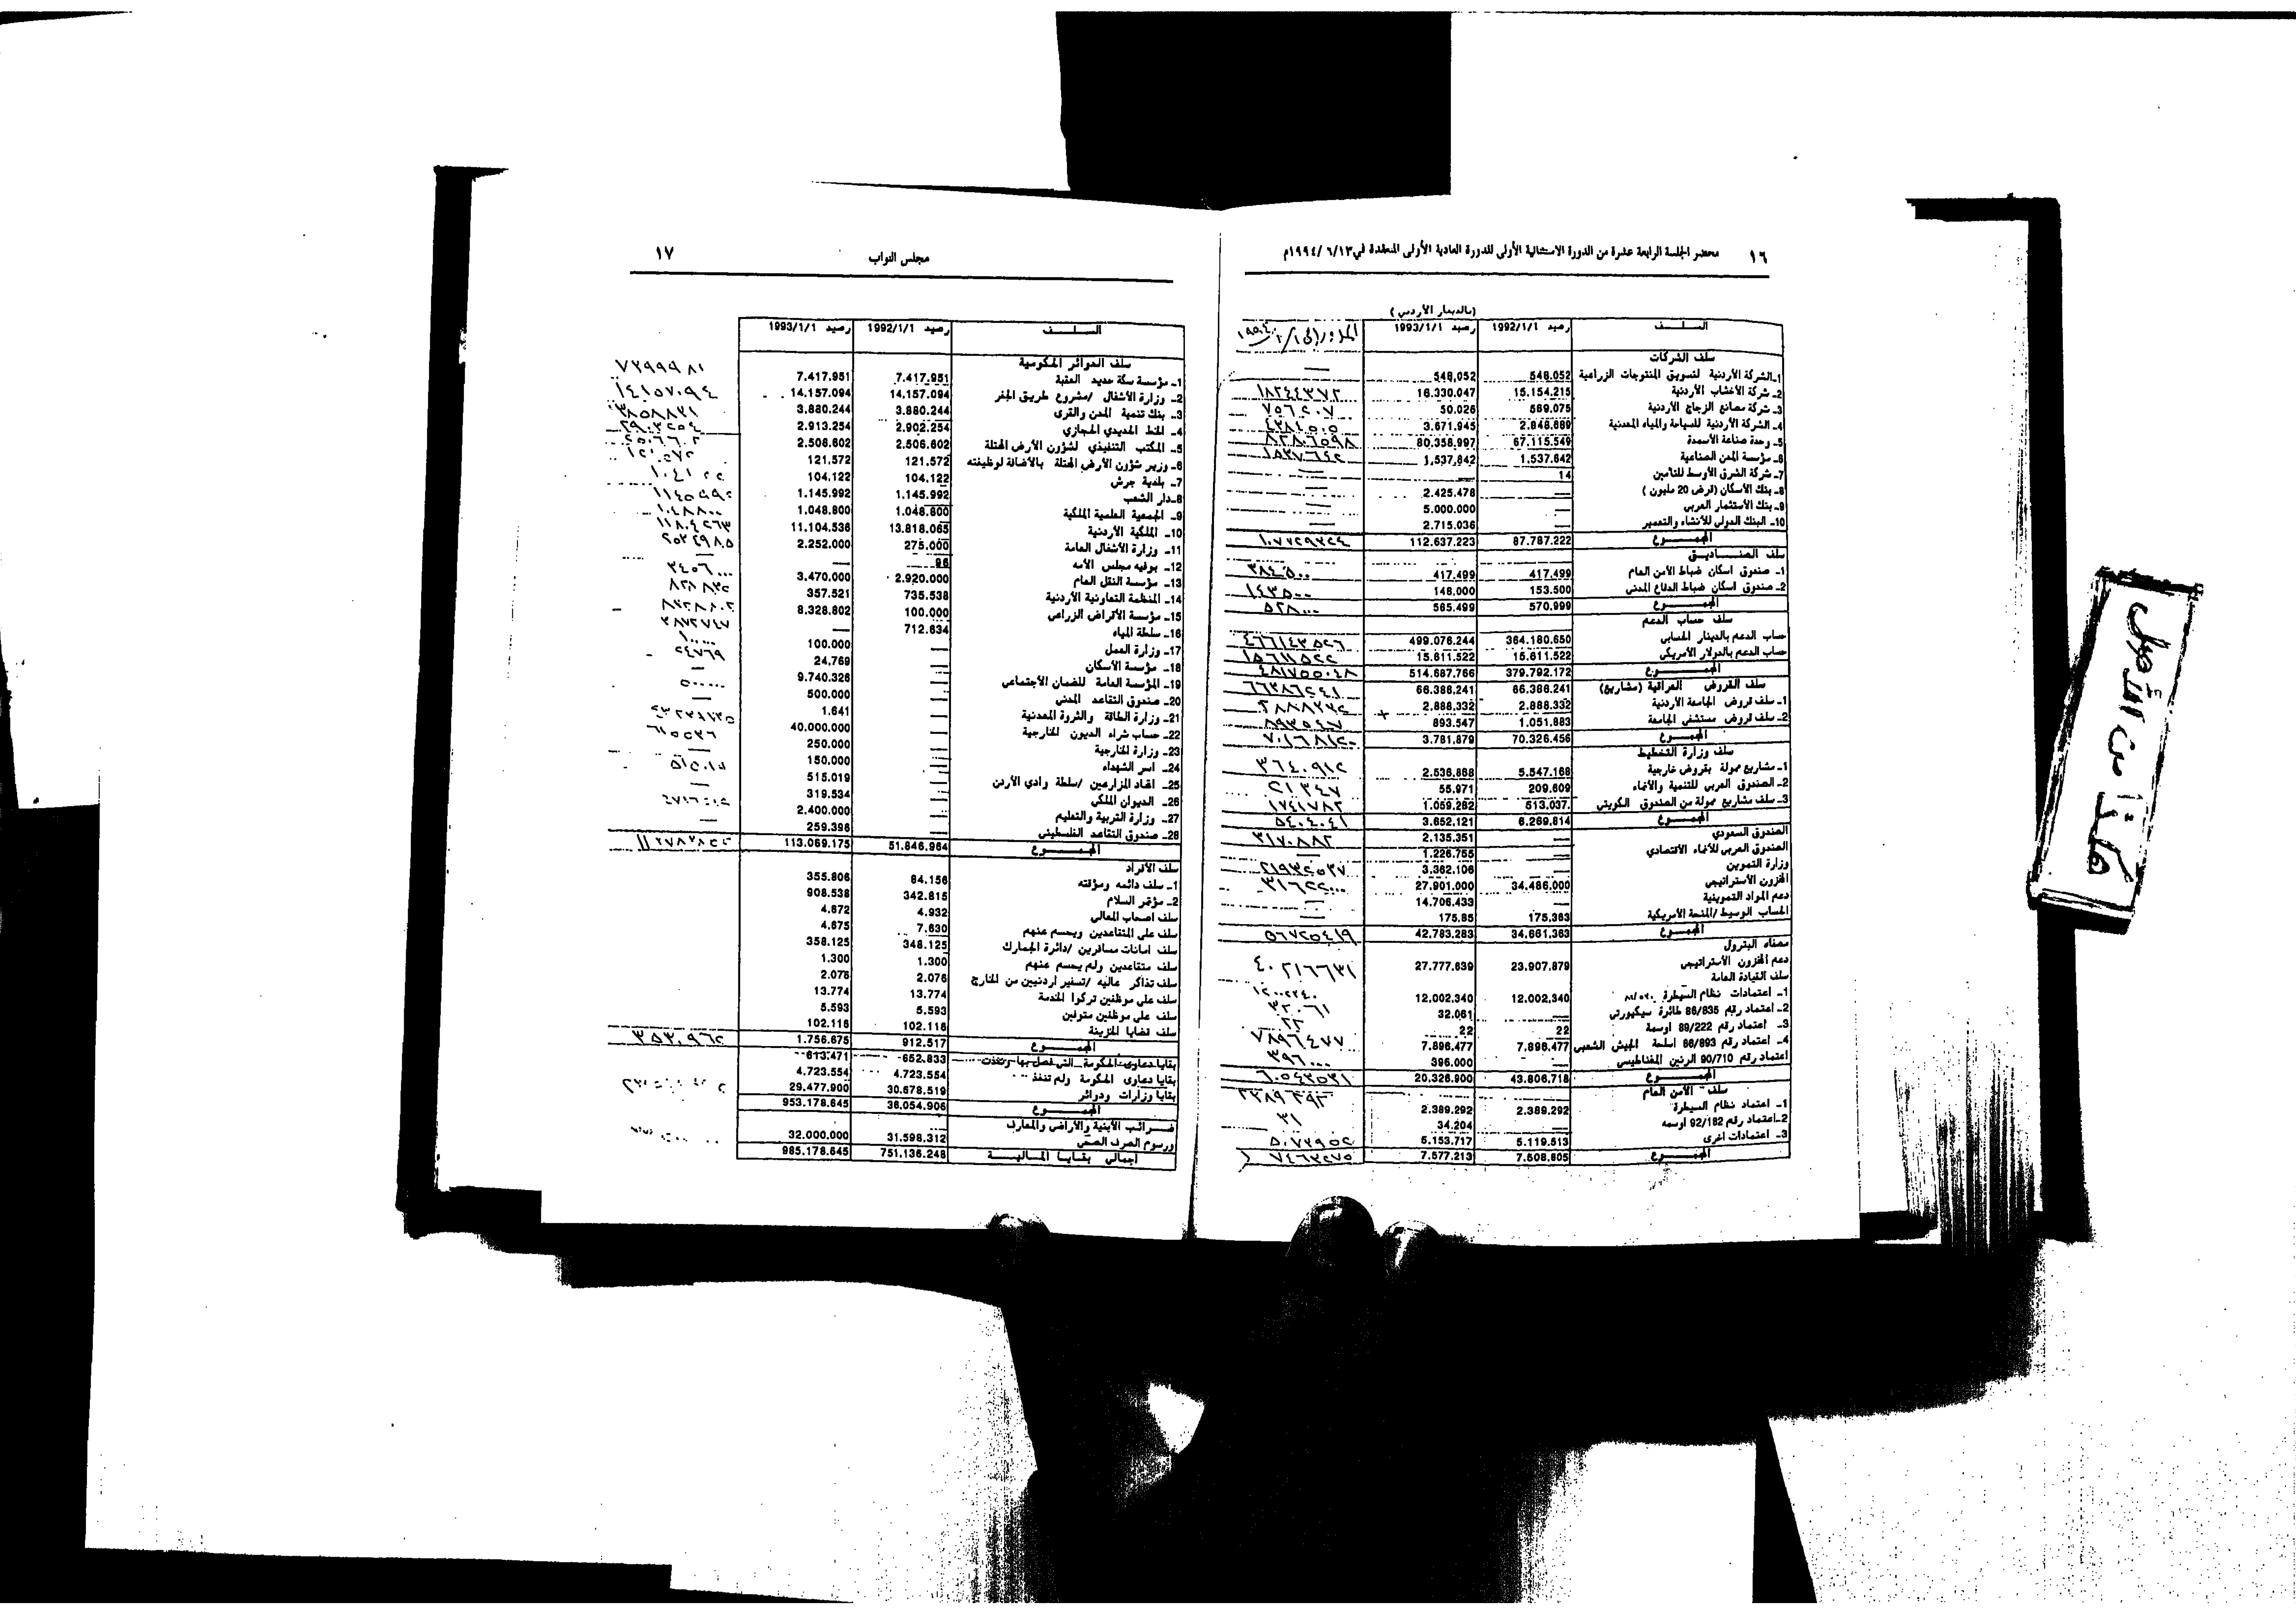 ١٦ محضر الجلسة الرابعة عشرة من الدورة الاستثنائية الأولى للدورة العادية الأولى المنعقدة في ١٣/٦/١٩٩٤م
(بالدينار الأردني)
السلف رصيد 1992/1/1 رصيد 1993/1/1
سلف الشركات
1ـ الشركة الأردنية لتسويق المنتوجات الزراعية 548.052 548.052 —
2ـ شركة الأخشاب الأردنية 15.154.215 16.330.047 ١٨٢٤٤٣٧٢
3ـ شركة مصانع الزجاج الأردنية 569.075 50.026 ٧٥٦٢٠٧
4ـ الشركة الأردنية للسياحة والمياه المعدنية 2.848.689 3.671.945 ٤٣٨٤٥٠٥
5ـ وحدة صناعة الأسمدة 67.115.549 80.358.997 ٨٢٨٠٦٥٩٨
6ـ مؤسسة المدن الصناعية 1.537.642 1.537.642 ١٥٣٧٦٤٢
7ـ شركة الشرق الأوسط للتأمين 14 — —
8ـ بنك الأسكان (قرض 20 مليون) — 2.425.478 —
9ـ بنك الأستثمار العربي — 5.000.000 —
10ـ البنك الدولي للأنشاء والتعمير — 2.715.036 —
المجموع 87.787.222 112.637.223 ١٠٧٧٢٩٣٢٤
سلف الصناديق
1ـ صندوق اسكان ضباط الأمن العام 417.499 417.499 ٣٨٤٥٠٠
2ـ صندوق اسكان ضباط الدفاع المدني 153.500 148.000 ١٤٣٥٠٠
المجموع 570.999 565.499 ٥٢٨٠٠٠
سلف حساب الدعم
حساب الدعم بالدينار الحسابي 364.180.650 499.076.244 ٤٦٦١٤٣٥٢٦
حساب الدعم بالدولار الأمريكي 15.611.522 15.611.522 ١٥٦١١٥٢٢
المجموع 379.792.172 514.687.766 ٤٨١٧٥٥٠٤٨
سلف القروض العراقية (مشاريع) 66.386.241 66.386.241 ٦٦٣٨٦٢٤١
1ـ سلف قروض الجامعة الأردنية 2.888.332 2.888.332 ٢٨٨٨٣٣٢
2ـ سلف قروض مستشفى الجامعة 1.051.883 893.547 ٨٩٣٥٤٧
المجموع 70.326.456 3.781.879 ٧٠١٦٨١٢٠
سلف وزارة التخطيط
1ـ مشاريع ممولة بقروض خارجية 5.547.168 2.536.868 ٣٦٤٠٩١٢
2ـ الصندوق العربي للتنمية والأنماء 209.609 55.971 ٢١٣٤٧
3ـ سلف مشاريع ممولة من الصندوق الكويتي 513.037 1.059.282 ١٧٤١٧٨٢
المجموع 6.269.814 3.652.121 ٥٤٠٤٠٤١
الصندوق السعودي — 2.135.351 ٣١٧٠٨٨٢
الصندوق العربي للأنماء الأقتصادي — 1.226.755 —
وزارة التموين — 3.362.106 ٢١٩٣٢٥٣٧
المخزون الأستراتيجي 34.486.000 27.901.000 ٣١٦٢٢٠٠٠
دعم المواد التموينية — 14.706.433 —
الحساب الوسيط /المنحة الأمريكية 175.363 175.85 —
المجموع 34.661.363 42.783.283 ٥٦٧٢٥٤١٩
مصفاه البترول
دعم المخزون الأستراتيجي 23.907.879 27.777.639 ٤٠٢١٦٦٣١
سلف القيادة العامة
1ـ اعتمادات نظام السيطرة 12.002.340 12.002.340 ١٢٠٠٢٣٤٠
2ـ اعتماد رقم 86/835 طائرة سيكيورتي — 32.061 ٣٢٠٦١
3ـ اعتماد رقم 89/222 اوسمة 22 22 ٢٢
4ـ اعتماد رقم 86/893 اسلحة الجيش الشعبي 7.896.477 7.896.477 ٧٨٩٦٤٧٧
اعتماد رقم 90/710 الرنين المغناطيسي — 396.000 ٣٩٦٠٠٠
المجموع 43.806.718 20.326.900 ٦٠٥٤٣٥٣١
سلف الأمن العام
1ـ اعتماد نظام السيطرة 2.389.292 2.389.292 ٢٣٨٩٢٩٢
2ـ اعتماد رقم 92/182 اوسمه — 34.204 ٣١
3ـ اعتمادات اخرى 5.119.513 5.153.717 ٥٠٧٣٩٥٢
المجموع 7.508.805 7.577.213 ٧٤٦٣٢٧٥
مجلس النواب ١٧
السلف رصيد 1992/1/1 رصيد 1993/1/1
سلف الدوائر الحكومية
1ـ مؤسسة سكة حديد العقبة 7.417.951 7.417.951 ٧٢٩٩٩٨١
2ـ وزارة الأشغال /مشروع طريق الجفر 14.157.094 14.157.094 ١٤١٥٧٠٩٤
3ـ بنك تنمية المدن والقرى 3.880.244 3.880.244 ٣٨٥٨٨٢١
4ـ الخط الحديدي الحجازي 2.902.254 2.913.254 ٢٩٠٢٢٥٤
5ـ المكتب التنفيذي لشؤون الأرض المحتلة 2.506.602 2.506.602 ٢٥٠٦٦٠٢
6ـ وزير شؤون الأرض المحتلة بالأضافة لوظيفته 121.572 121.572 ١٢١٥٧٢
7ـ بلدية جرش 104.122 104.122 ١٠٤١٢٢
8ـ دار الشعب 1.145.992 1.145.992 ١١٤٥٩٩٢
9ـ الجمعية العلمية الملكية 1.048.800 1.048.800 ١٠٤٨٨٠٠
10ـ الملكية الأردنية 13.818.065 11.104.536 ١١٨٠٤٢٦٣
11ـ وزارة الأشغال العامة 275.000 2.252.000 ٢٥٣٤٩٨٥
12ـ بوفيه مجلس الأمه 96 — —
13ـ مؤسسة النقل العام 2.920.000 3.470.000 ٣٤٥٦٠٠٠
14ـ المنظمة التعاونية الأردنية 735.538 357.521
15ـ مؤسسة الأقراض الزراعي 100.000 8.328.802
16ـ سلطة المياه 712.634 — ٣٨٧٢٧٤٧
17ـ وزارة العمل — 100.000 ١٠٠٠٠٠
18ـ مؤسسة الأسكان — 24.769 ٢٤٧٦٩
19ـ المؤسسة العامة للضمان الأجتماعي — 9.740.326 —
20ـ صندوق التقاعد المدني — 500.000 ٥٠٠٠٠٠
21ـ وزارة الطاقة والثروة المعدنية — 1.641 —
22ـ حساب شراء الديون الخارجية — 40.000.000
23ـ وزارة الخارجية — 250.000
24ـ اسر الشهداء — 150.000 —
25ـ اتحاد المزارعين /سلطة وادي الأردن — 515.019 ٥١٥٠١٥
26ـ الديوان الملكي — 319.534 —
27ـ وزارة التربية والتعليم — 2.400.000
28ـ صندوق التقاعد الفلسطيني — 259.396 —
المجموع 51.846.964 113.069.175
سلف الأفراد
1ـ سلف دائمه ومؤقته 84.156 355.806
2ـ مؤتمر السلام 342.815 908.538
سلف اصحاب المعالي 4.932 4.672
سلف على المتقاعدين ويحسم عنهم 7.630 4.675
سلف امانات مسافرين /دائرة الجمارك 348.125 358.125
سلف متقاعدين ولم يحسم عنهم 1.300 1.300
سلف تذاكر عاليه /تسفير اردنيين من الخارج 2.076 2.076
سلف على موظفين تركوا الخدمة 13.774 13.774
سلف على موظفين متوفين 5.593 5.593
سلف قضايا الخزينة 102.116 102.116
المجموع 912.517 1.756.675 ٣٥٣٠٩٦٢
بقايا دعاوى الحكومة التي فصل بها ونفذت 652.833 613.471
بقايا دعاوى الحكومة ولم تنفذ 4.723.554 4.723.554
بقايا وزارات ودوائر 30.678.519 29.477.900
المجموع 36.054.906 953.178.645
ضرائب الأبنية والأراضي والمعارف
ورسوم الصرف الصحي 31.598.312 32.000.000
اجمالي بقايا المالية 751.136.248 985.178.645
هكذا من الأصل